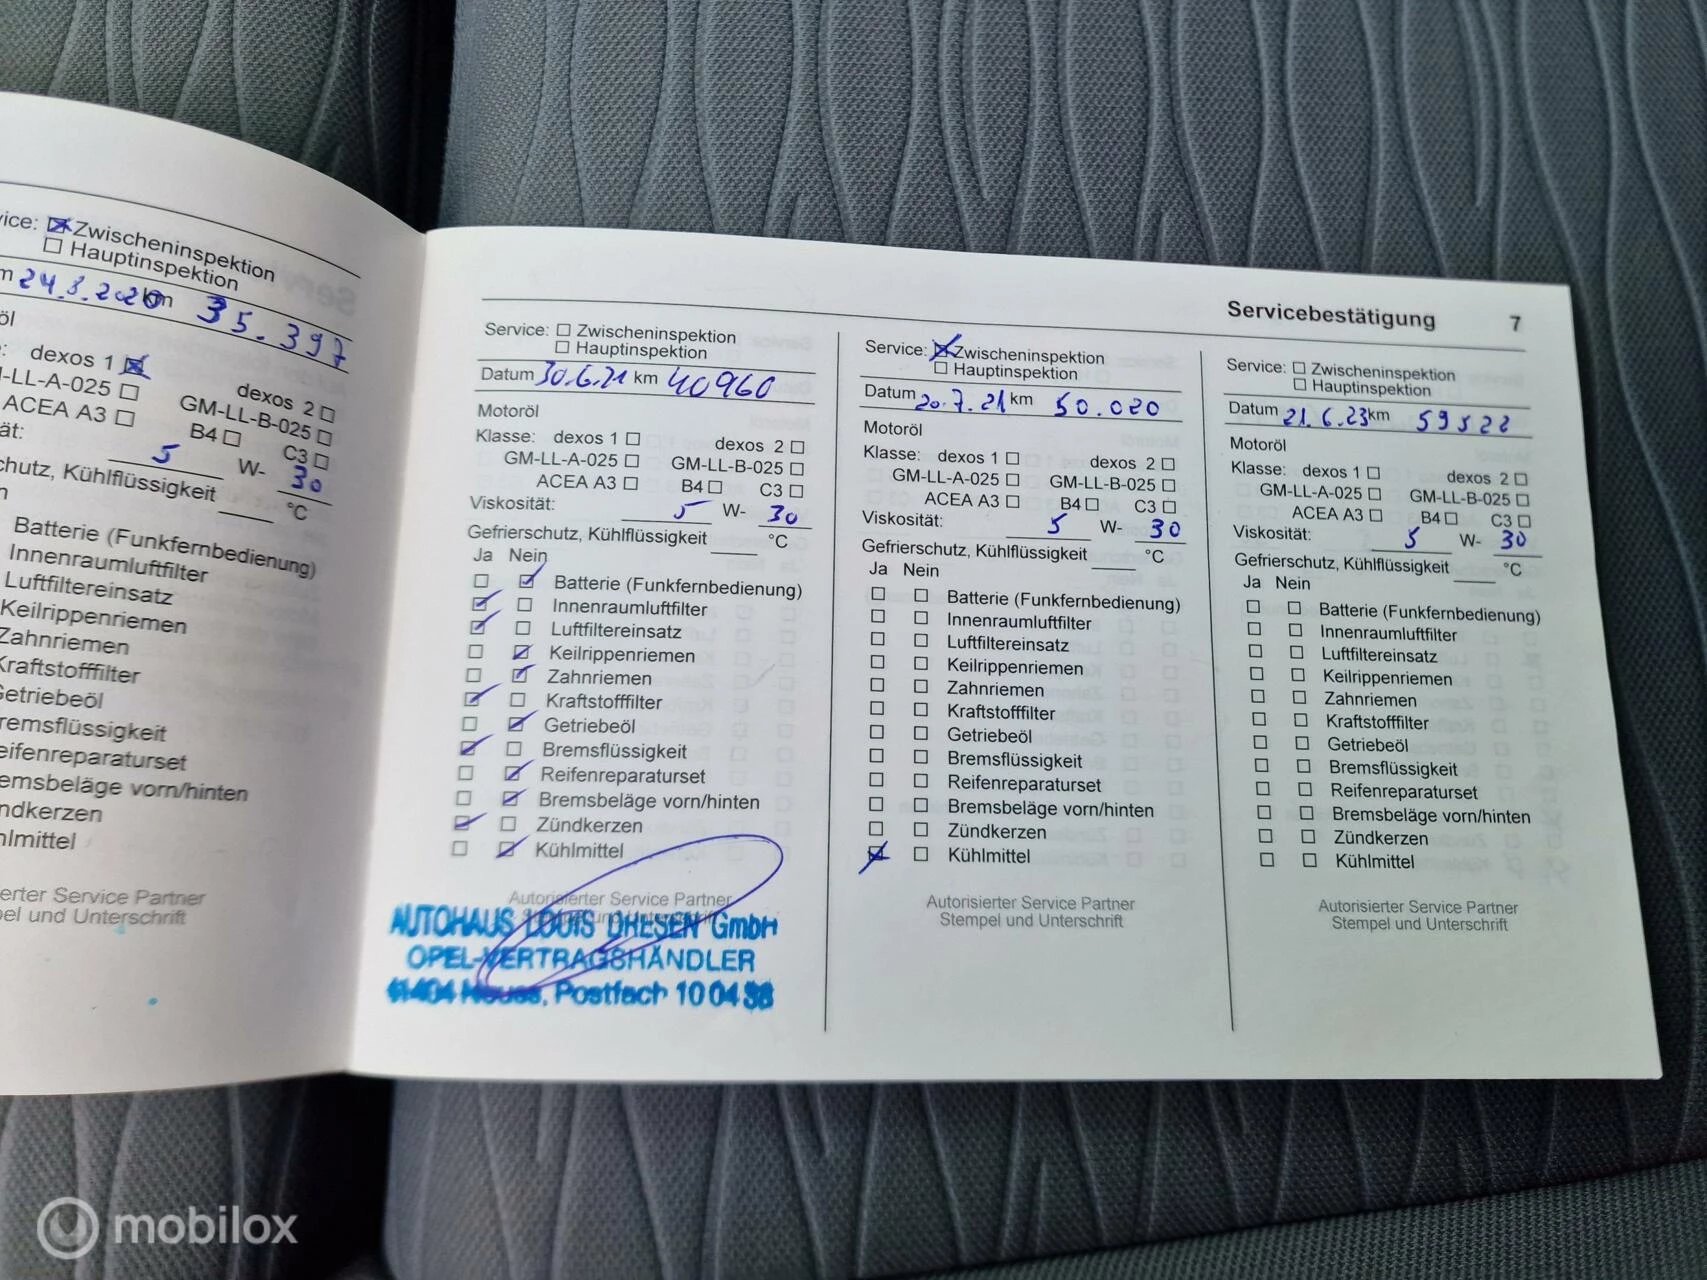 vice: Zwischeninspektion
Hauptinspektion
m 24.8.2020 km 35.397
öl
: dexos 1 dexos 2
-LL-A-025 GM-LL-B-025
ACEA A3 B4 C3
ät: 5 W- 30
chutz, Kühlflüssigkeit °C
n
Batterie (Funkfernbedienung)
Innenraumluftfilter
Luftfiltereinsatz
Keilrippenriemen
Zahnriemen
Kraftstofffilter
Getriebeöl
remsflüssigkeit
eifenreparaturset
emsbeläge vorn/hinten
ndkerzen
hlmittel
erter Service Partner
pel und Unterschrift
Servicebestätigung 7
Service: Zwischeninspektion
Hauptinspektion
Datum 30.6.21 km 40960
Motoröl
Klasse: dexos 1 dexos 2
GM-LL-A-025 GM-LL-B-025
ACEA A3 B4 C3
Viskosität: 5 W- 30
Gefrierschutz, Kühlflüssigkeit °C
Ja Nein
Batterie (Funkfernbedienung)
Innenraumluftfilter
Luftfiltereinsatz
Keilrippenriemen
Zahnriemen
Kraftstofffilter
Getriebeöl
Bremsflüssigkeit
Reifenreparaturset
Bremsbeläge vorn/hinten
Zündkerzen
Kühlmittel
Autorisierter Service Partner
Stempel und Unterschrift
AUTOHAUS LOUIS DRESEN GmbH
OPEL-VERTRAGSHÄNDLER
41404 Neuss, Postfach 10 04 38
Service: Zwischeninspektion
Hauptinspektion
Datum 20.7.21 km 50.020
Motoröl
Klasse: dexos 1 dexos 2
GM-LL-A-025 GM-LL-B-025
ACEA A3 B4 C3
Viskosität: 5 W- 30
Gefrierschutz, Kühlflüssigkeit °C
Ja Nein
Batterie (Funkfernbedienung)
Innenraumluftfilter
Luftfiltereinsatz
Keilrippenriemen
Zahnriemen
Kraftstofffilter
Getriebeöl
Bremsflüssigkeit
Reifenreparaturset
Bremsbeläge vorn/hinten
Zündkerzen
Kühlmittel
Autorisierter Service Partner
Stempel und Unterschrift
Service: Zwischeninspektion
Hauptinspektion
Datum 21.6.23 km 59522
Motoröl
Klasse: dexos 1 dexos 2
GM-LL-A-025 GM-LL-B-025
ACEA A3 B4 C3
Viskosität: 5 W- 30
Gefrierschutz, Kühlflüssigkeit °C
Ja Nein
Batterie (Funkfernbedienung)
Innenraumluftfilter
Luftfiltereinsatz
Keilrippenriemen
Zahnriemen
Kraftstofffilter
Getriebeöl
Bremsflüssigkeit
Reifenreparaturset
Bremsbeläge vorn/hinten
Zündkerzen
Kühlmittel
Autorisierter Service Partner
Stempel und Unterschrift
mobilox